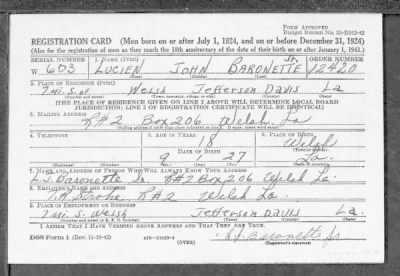 Form Approved
Budget Bureau No. 33-R012-42
REGISTRATION CARD (Men born on or after July 1, 1924, and on or before December 31, 1924)
(Also for the registration of men as they reach the 18th anniversary of the date of their birth on or after January 1, 1943.)
SERIAL NUMBER 1. NAME (Print) ORDER NUMBER
W 603 LUCIEN JOHN BARONETTE Jr. 12420
(First) (Middle) (Last)
2. PLACE OF RESIDENCE (Print)
7 mi. S. of Welsh Jefferson Davis La
(Number and street) (Town, township, village, or city) (County) (State)
[THE PLACE OF RESIDENCE GIVEN ON LINE 2 ABOVE WILL DETERMINE LOCAL BOARD
JURISDICTION; LINE 2 OF REGISTRATION CERTIFICATE WILL BE IDENTICAL]
3. MAILING ADDRESS
R#2 Box 206 Welsh La
[Mailing address if other than place indicated on line 2. If same, insert word same]
4. TELEPHONE 5. AGE IN YEARS 6. PLACE OF BIRTH
18 Welsh
DATE OF BIRTH
9 27 La.
7. NAME AND ADDRESS OF PERSON WHO WILL ALWAYS KNOW YOUR ADDRESS
L. J. Baronette Sr. R#2 Box 206 Welsh La.
8. EMPLOYER'S NAME AND ADDRESS
R#2 Welsh La.
9. PLACE OF EMPLOYMENT OR BUSINESS
7 mi. S. Welsh Jefferson Davis La.
(Number and street or R. F. D. number) (Town) (County) (State)
I AFFIRM THAT I HAVE VERIFIED ABOVE ANSWERS AND THAT THEY ARE TRUE.
DSS Form 1 (Rev. 11-16-42) (OVER) L. J. Baronette Jr
(Registrant's signature)